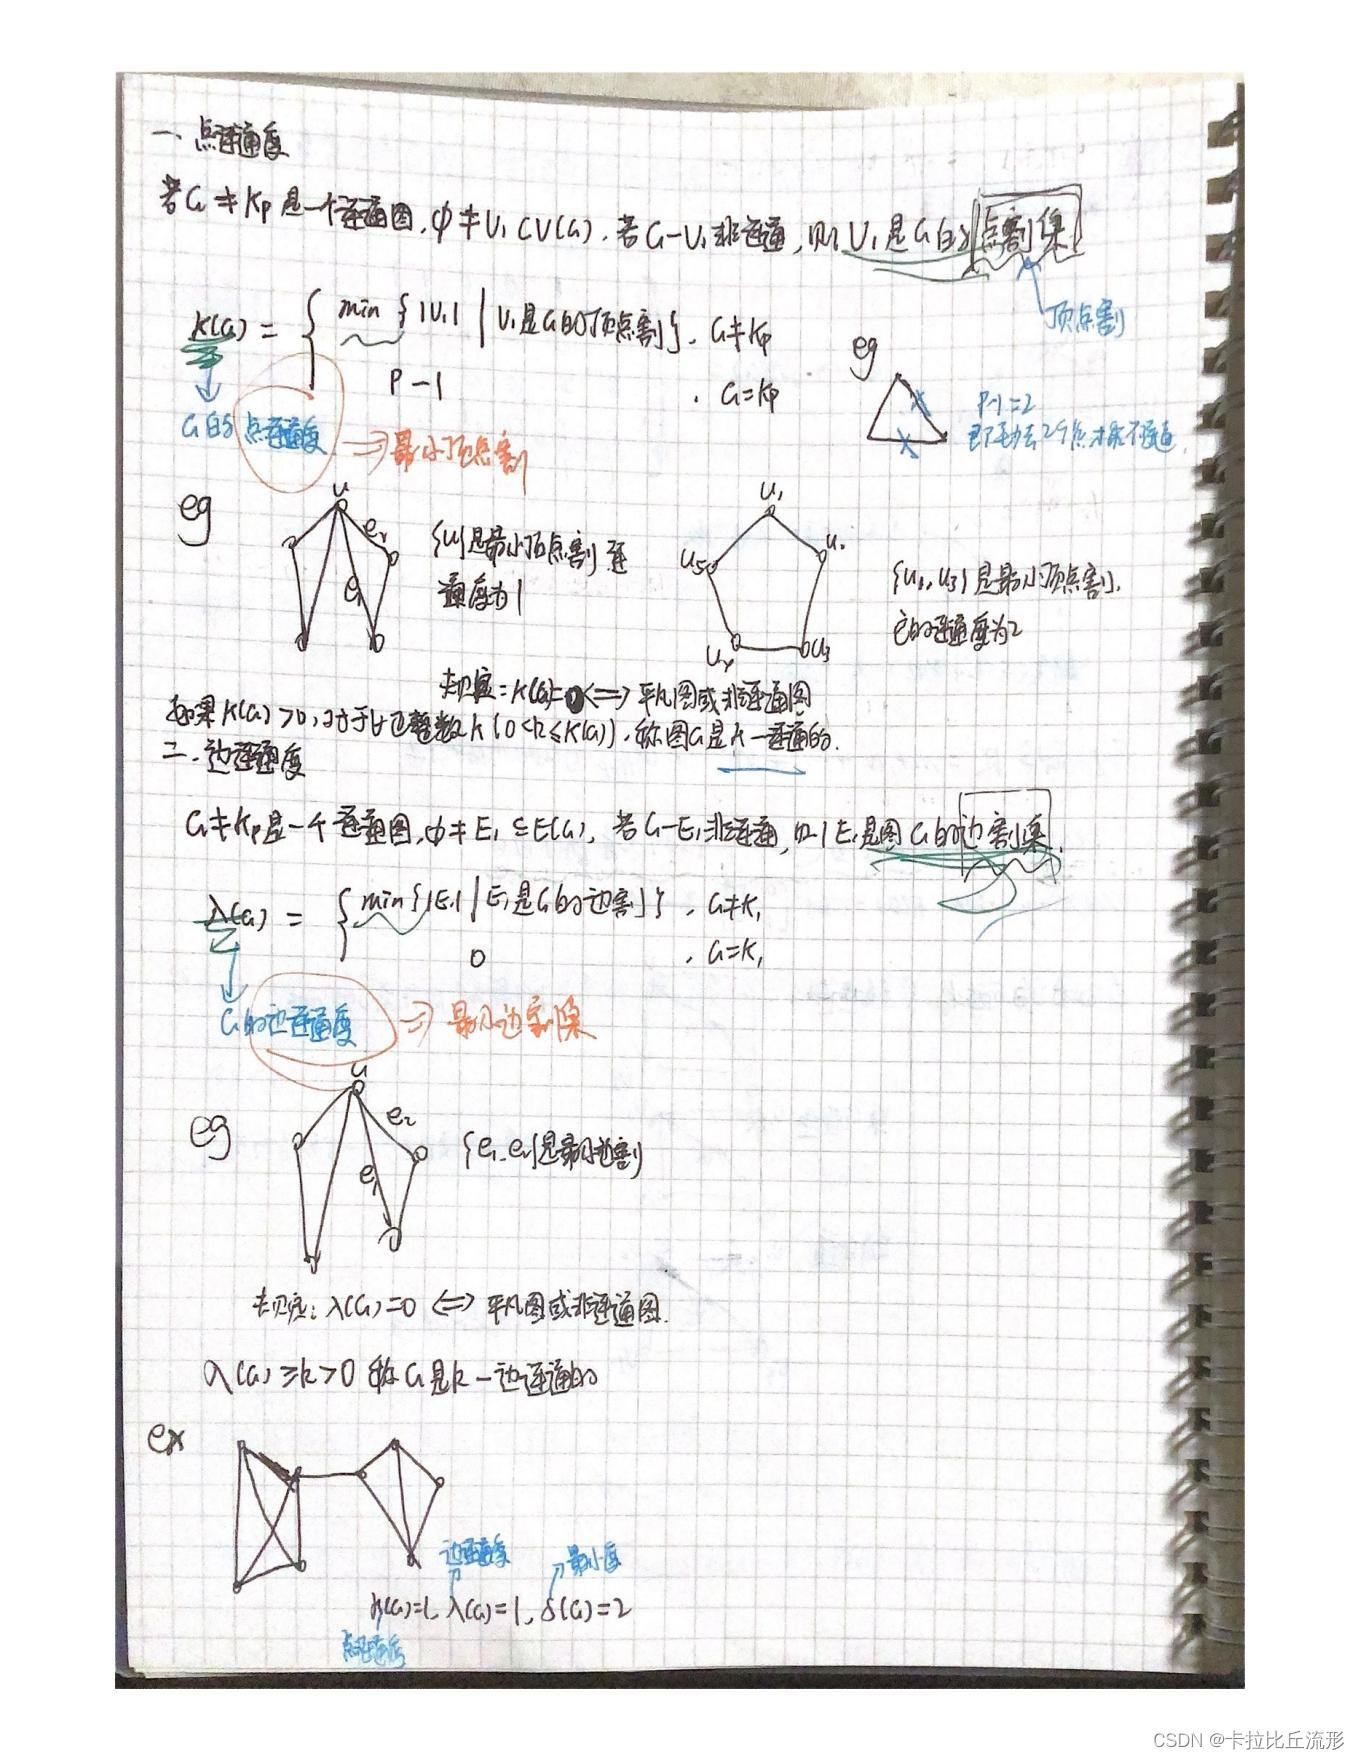 一、点连通度
若G≠Kp是一个连通图,φ≠V₁⊂V(G).若G-V₁非连通,则V₁是G的点割集
顶点割
κ(G) = { min { |V₁| | V₁是G的顶点割 }. G≠Kp
p-1 . G=Kp
G的点连通度 ⇒ 最小顶点割
eg
p-1=2
即至少去2个点才能不连通.
eg
u
e₂
e₁
{u}是最小顶点割 连
通度为1
u₁
u₂
u₃
u₄
u₅
是最小顶点割.
它的连通度为2
κ(G)=0 <=> 平凡图或非连通图
如果κ(G)>0,对于∀正整数k(0<k≤κ(G)).称图G是k-连通的.
二.边连通度
G≠Kp是一个连通图,φ≠E₁⊆E(G),若G-E₁非连通,则E₁是图G的边割集.
λ(G) = { min{|E₁| | E₁是G的边割}. G≠K₁
0 . G=K₁
G的边连通度 ⇒ 最小边割集
eg
u
e₂
e₁
{e₁,e₂}是最小边割
λ(G)=0 <=> 平凡图或非连通图.
λ(G)≥k>0 称G是k-边连通的
ex
边连通度
最小度
κ(G)=1, λ(G)=1, δ(G)=2
点连通度
CSDN @卡拉比丘流形